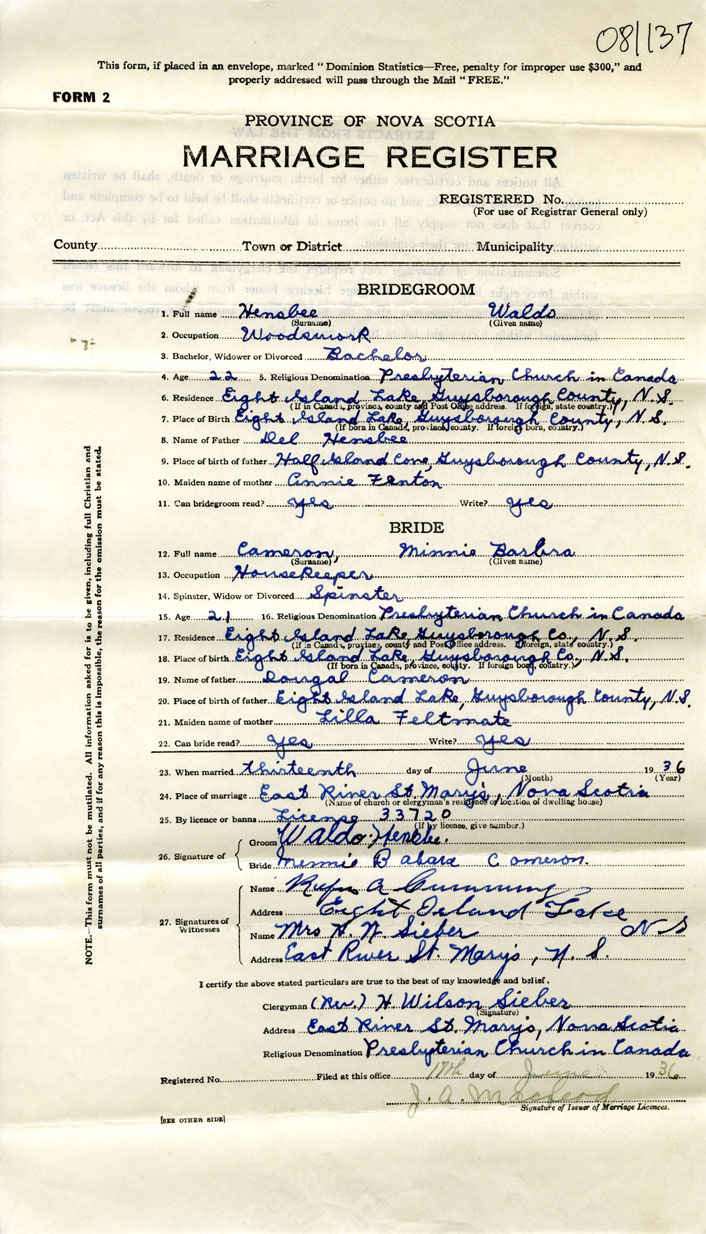 081137
This form, if placed in an envelope, marked " Dominion Statistics—Free, penalty for improper use $300," and
properly addressed will pass through the Mail " FREE."
FORM 2
PROVINCE OF NOVA SCOTIA
MARRIAGE REGISTER
REGISTERED No.
(For use of Registrar General only)
County Town or District Municipality
BRIDEGROOM
1. Full name Hensbee Waldo
(Surname) (Given name)
2. Occupation Woodswork
3. Bachelor, Widower or Divorced Bachelor
4. Age 22 5. Religious Denomination Presbyterian Church in Canada
6. Residence Eight Island Lake, Guysborough County, N.S.
(If in Canada, province, county and Post Office address. If foreign, state country.)
7. Place of Birth Eight Island Lake, Guysborough County, N.S.
(If born in Canada, province, county. If foreign born, country.)
8. Name of Father Del Hensbee
9. Place of birth of father Half Island Cove, Guysborough County, N.S.
10. Maiden name of mother Annie Fenton
11. Can bridegroom read? yes Write? yes
BRIDE
12. Full name Cameron, Minnie Barbra
(Surname) (Given name)
13. Occupation Housekeeper
14. Spinster, Widow or Divorced Spinster
15. Age 21 16. Religious Denomination Presbyterian Church in Canada
17. Residence Eight Island Lake, Guysborough Co., N.S.
(If in Canada, province, county and Post Office address. If foreign, state country.)
18. Place of birth Eight Island Lake, Guysborough Co., N.S.
(If born in Canada, province, county. If foreign born, country.)
19. Name of father Dougal Cameron
20. Place of birth of father Eight Island Lake, Guysborough County, N.S.
21. Maiden name of mother Lilla Feltmate
22. Can bride read? yes Write? yes
23. When married thirteenth day of June 1936
(Month) (Year)
24. Place of marriage East River St. Mary's, Nova Scotia
(Name of church or clergyman's residence or location of dwelling house)
25. By licence or banns License 33720
(If by licence, give number.)
26. Signature of Groom Waldo Hensbe.
Bride Minnie Babara Cameron.
27. Signatures of Witnesses
Name Rufus A Cumming
Address Eight Island Lake
N S
Name Mrs H. W. Sieber
Address East River St. Mary's, N. S.
I certify the above stated particulars are true to the best of my knowledge and belief.
Clergyman (Rev.) H. Wilson Sieber
(Signature)
Address East River St. Mary's, Nova Scotia
Religious Denomination Presbyterian Church in Canada
Registered No. Filed at this office 17th day of June 1936
J. A. McLeod
Signature of Issuer of Marriage Licences.
[SEE OTHER SIDE]
NOTE.—This form must not be mutilated. All information asked for is to be given, including full Christian and
surnames of all parties, and if for any reason this is impossible, the reason for the omission must be stated.